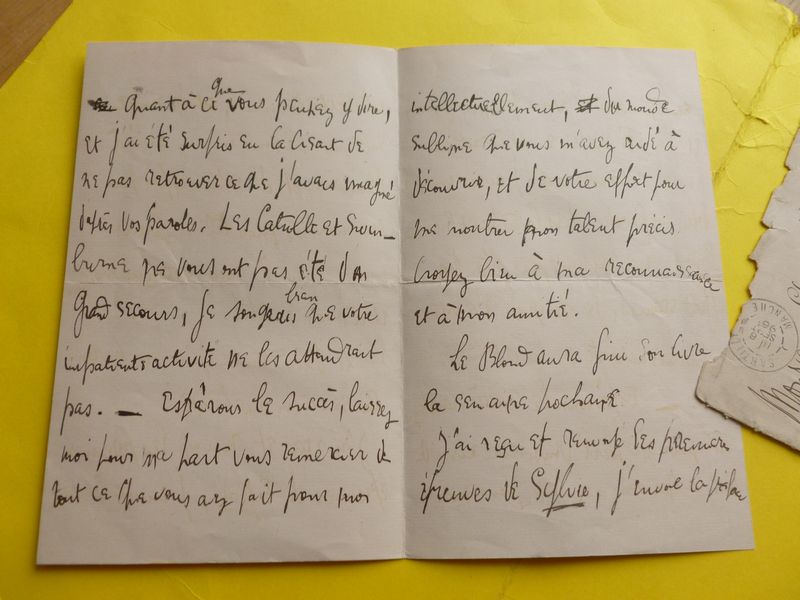 Quant à ce que vous pensez y dire,
et j'ai été surpris en la lisant de
ne pas retrouver ce que j'avais imaginé
d'après vos paroles. Les Catulle et Swin-
burne ne vous ont pas été d'un
grand secours, je songeais bien que votre
impatiente activité ne les attendrait
pas. — Espérons le succès, laissez
moi pour ma part vous remercier de
tout ce que vous avez fait pour moi
intellectuellement, du monde
sublime que vous m'avez aidé à
découvrir, et de votre effort pour
me montrer mon talent précis
croyez bien à ma reconnaissance
et à mon amitié.
Le Blond aura fini son livre
la semaine prochaine
J'ai reçu et renvoyé les premières
épreuves de Sylvie, j'envoie la préface
MANCHE